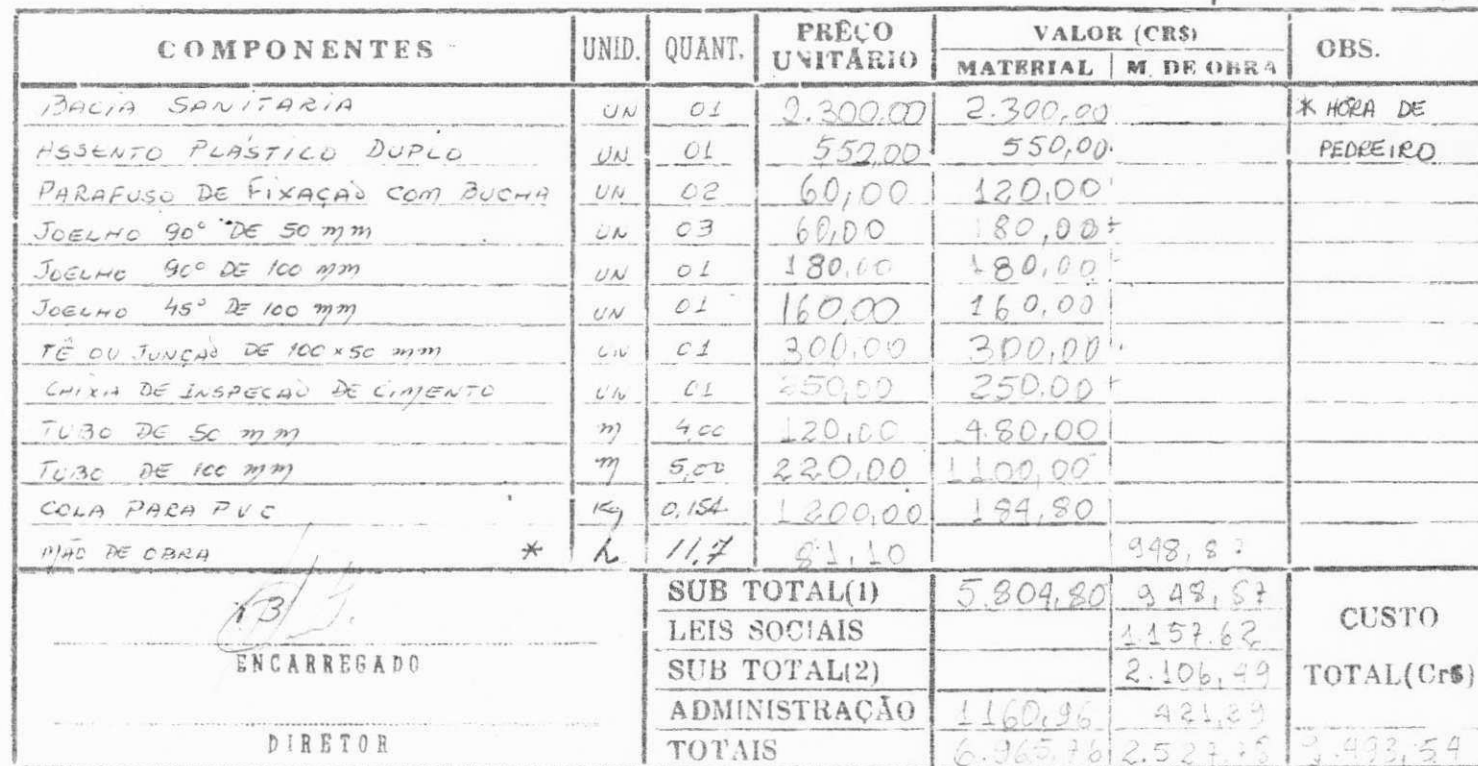 COMPONENTES UNID. QUANT. PRÊÇO UNITÁRIO VALOR (CR$) OBS.
MATERIAL M. DE OBRA
BACIA SANITARIA UN 01 2.300,00 2.300,00 * HORA DE
ASSENTO PLÁSTICO DUPLO UN 01 550,00 550,00 PEDREIRO
PARAFUSO DE FIXAÇÃO COM BUCHA UN 02 60,00 120,00
JOELHO 90° DE 50 mm UN 03 60,00 180,00
JOELHO 90° DE 100 mm UN 01 180,00 180,00
JOELHO 45° DE 100 mm UN 01 160,00 160,00
TÊ OU JUNÇÃO DE 100 x 50 mm UN 01 300,00 300,00
CAIXA DE INSPEÇÃO DE CIMENTO UN 01 250,00 250,00
TUBO DE 50 mm m 4,00 120,00 480,00
TUBO DE 100 mm m 5,00 220,00 1100,00
COLA PARA PVC Kg 0,154 1200,00 184,80
MÃO DE OBRA * h 11,7 81,10
SUB TOTAL(1) 5.804,80 948,87
LEIS SOCIAIS 1.157.62
SUB TOTAL(2) 2.106,49
ADMINISTRAÇÃO 1160,96 421,29
TOTAIS 6.965,76 2.527,78
CUSTO
TOTAL(Cr$)
9.493,54
ENCARREGADO
DIRETOR